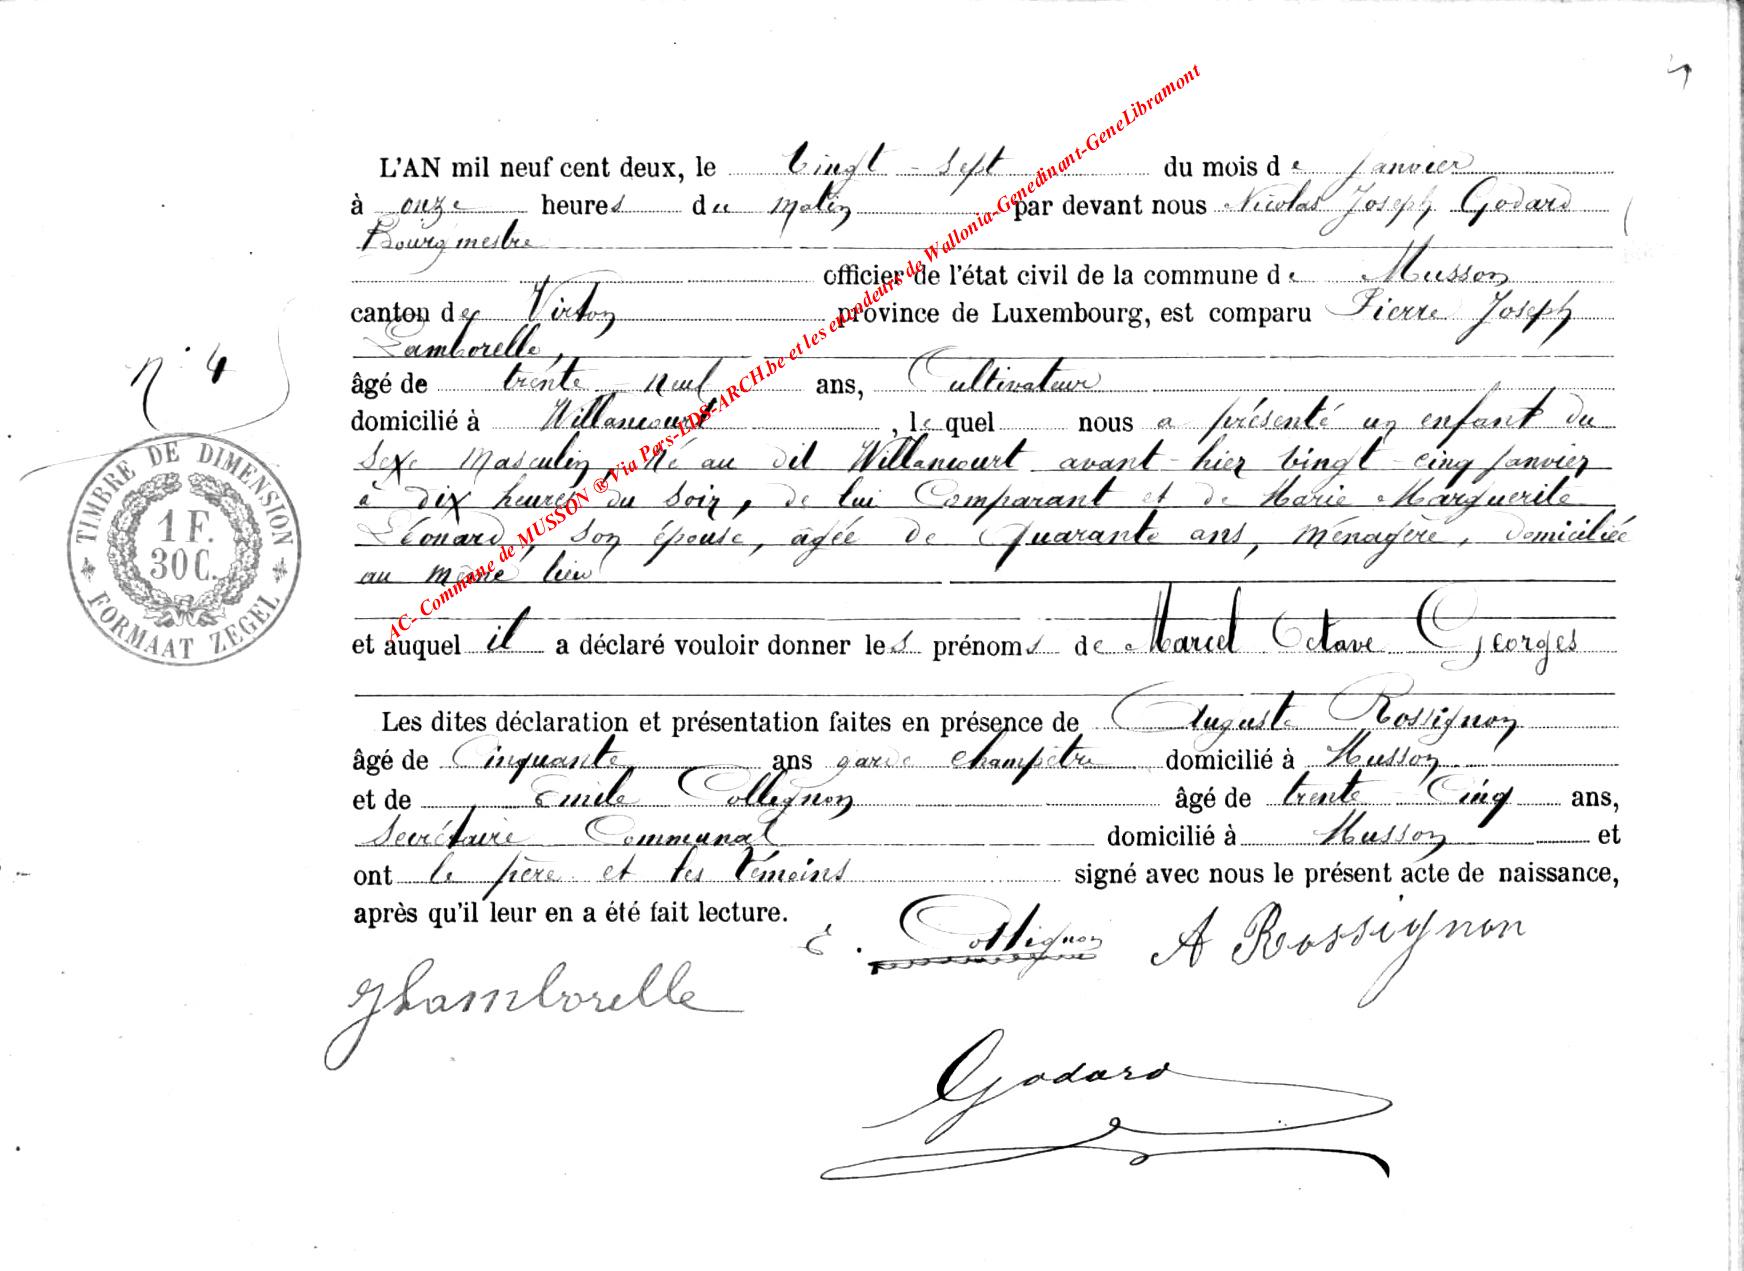 4
L'AN mil neuf cent deux, le vingt-sept du mois de janvier
à onze heures du matin par devant nous Nicolas Joseph Godard
Bourgmestre
officier de l'état civil de la commune de Musson
canton de Virton province de Luxembourg, est comparu Pierre Joseph
Lamborelle,
n° 4
âgé de trente-neuf ans, Cultivateur
domicilié à Willancourt, lequel nous a présenté un enfant du
sexe masculin, né au dit Willancourt avant-hier vingt-cinq janvier
à dix heures du soir, de lui Comparant et de Marie Marguerite
Léonard, son épouse, âgée de Quarante ans, ménagère, domiciliée
au même lieu
et auquel il a déclaré vouloir donner les prénoms de Marcel Octave Georges
Les dites déclaration et présentation faites en présence de Auguste Rossignon
âgé de Cinquante ans garde champêtre domicilié à Musson
et de Emile Collignon âgé de trente-Cinq ans,
Secrétaire Communal domicilié à Musson et
ont le père et les témoins signé avec nous le présent acte de naissance,
après qu'il leur en a été fait lecture.
E. Collignon A Rossignon
JLamborelle
Godard
TIMBRE DE DIMENSION
1 F.
30 C.
FORMAAT ZEGEL
AC- Commune de MUSSON ® Via Pers-LDS-ARCH.be et les encodeurs de Wallonia-Genedinant-GeneLibramont